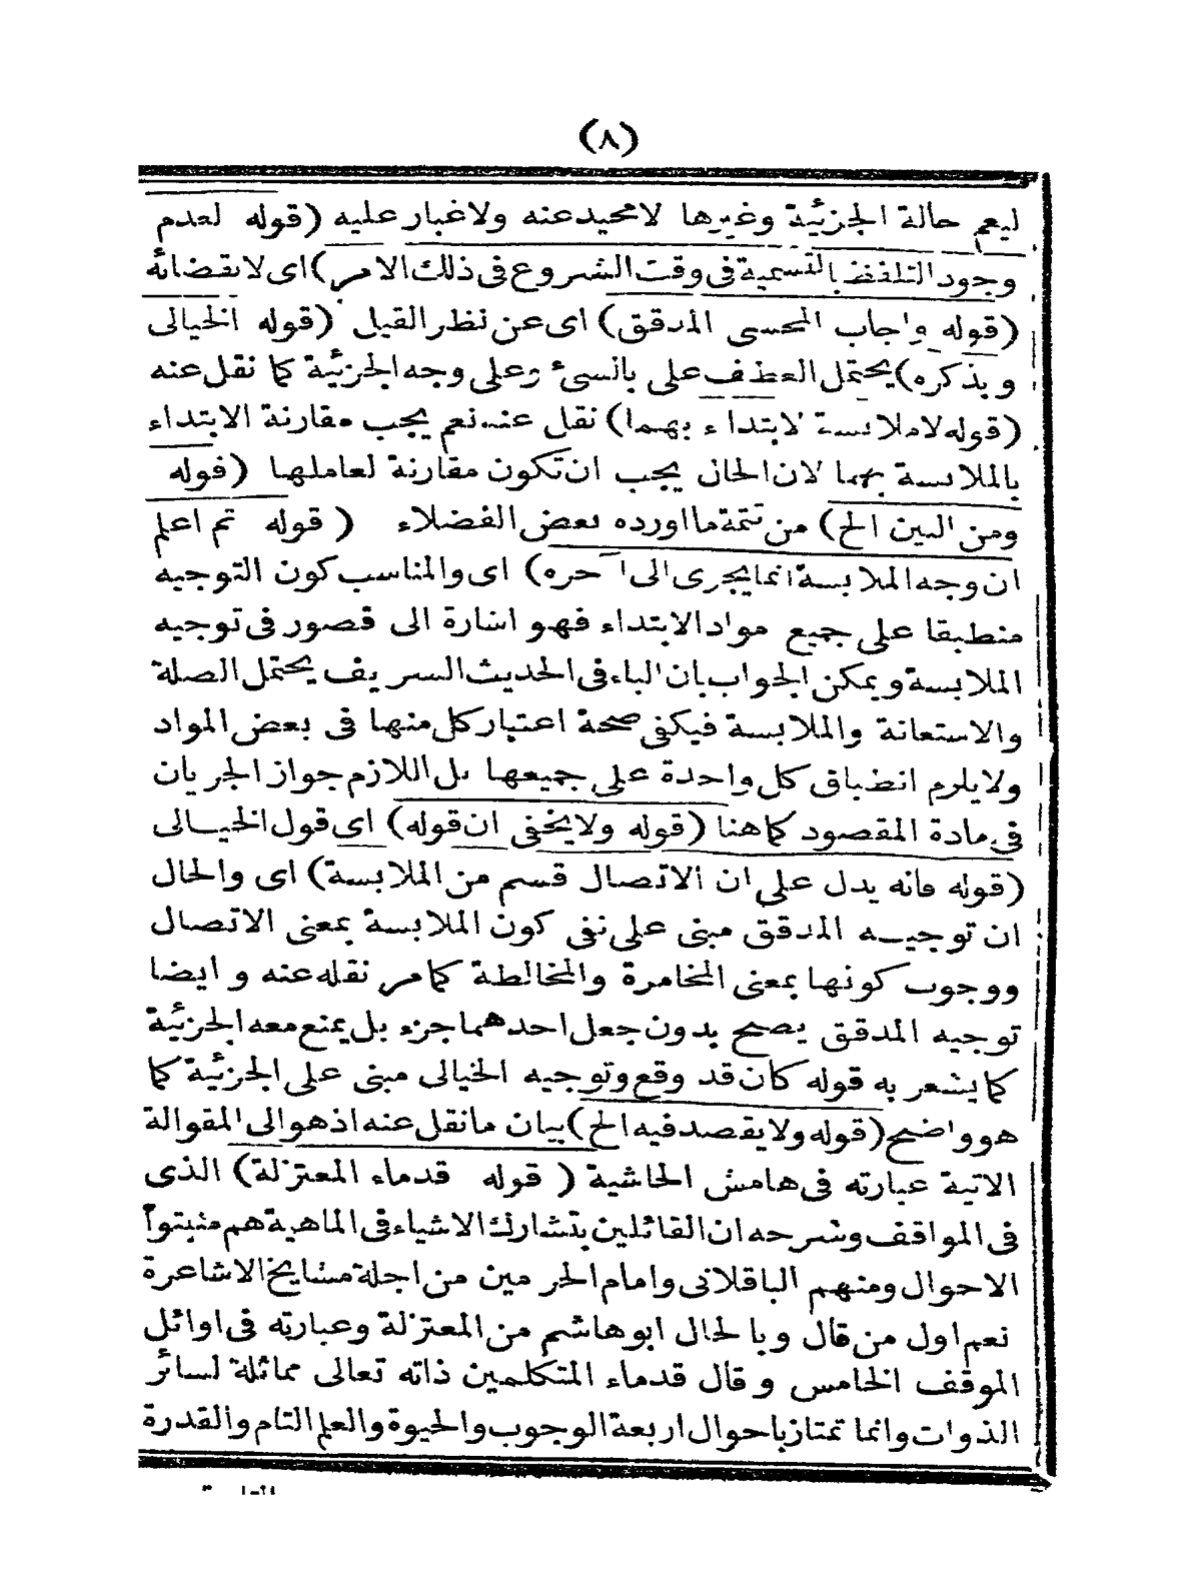 (٨)
ليعم حالة الجزئية وغيرها لا محيد عنه ولا غبار عليه (قوله لعدم
وجود التلفظ بالتسمية فى وقت الشروع فى ذلك الامر) اى لانقضائه
(قوله واجاب المحسى المدقق) اى عن نظر القيل (قوله الخيالى
وبذكره) يحتمل العطف على بانسئ وعلى وجه الجزئية كما نقل عنه
(قوله لا ملابسة لابتداء بهما) نقل عنه نعم يجب مقارنة الابتداء
بالملابسة بهما لان الحال يجب ان تكون مقارنة لعاملها (قوله
ومن البين الخ) من تتمة ما اورده بعض الفضلاء ( قوله ثم اعلم
ان وجه الملابسة انما يجرى الى آخره) اى والمناسب كون التوجيه
منطبقا على جميع مواد الابتداء فهو اشارة الى قصور فى توجيه
الملابسة ويمكن الجواب بان الباء فى الحديث الشريف يحتمل الصلة
والاستعانة والملابسة فيكفى صحة اعتبار كل منها فى بعض المواد
ولايلزم انطباق كل واحدة على جميعها بل اللازم جواز الجريان
فى مادة المقصود كما هنا (قوله ولا يخفى ان قوله) اى قول الخيـالى
(قوله فانه يدل على ان الاتصال قسم من الملابسة) اى والحال
ان توجيـه المدقق مبنى على نفى كون الملابسة بمعنى الاتصال
ووجوب كونها بمعنى المخامرة والمخالطة كما مر نقله عنه وايضا
توجيه المدقق يصح بدون جعل احدهما جزء بل يمنع معه الجزئية
كما يشعر به قوله كان قد وقع وتوجيه الخيالى مبنى على الجزئية كما
هو واضح (قوله ولا يقصد فيه الخ) بيان ما نقل عنه اذ هو الى المقوالة
الاتية عبارته فى هامش الحاشية ( قوله قدماء المعتزلة) الذى
فى المواقف وشرحه ان القائلين بتشارك الاشياء فى الماهية هم مثبتوا
الاحوال ومنهم الباقلانى وامام الحرمين من اجلة مشايخ الاشاعرة
نعم اول من قال وبالحال ابو هاشم من المعتزلة وعبارته فى اوائل
الموقف الخامس وقال قدماء المتكلمين ذاته تعالى مماثلة لسائر
الذوات وانما تمتاز باحوال اربعة الوجوب والحيوة والعلم التام والقدرة